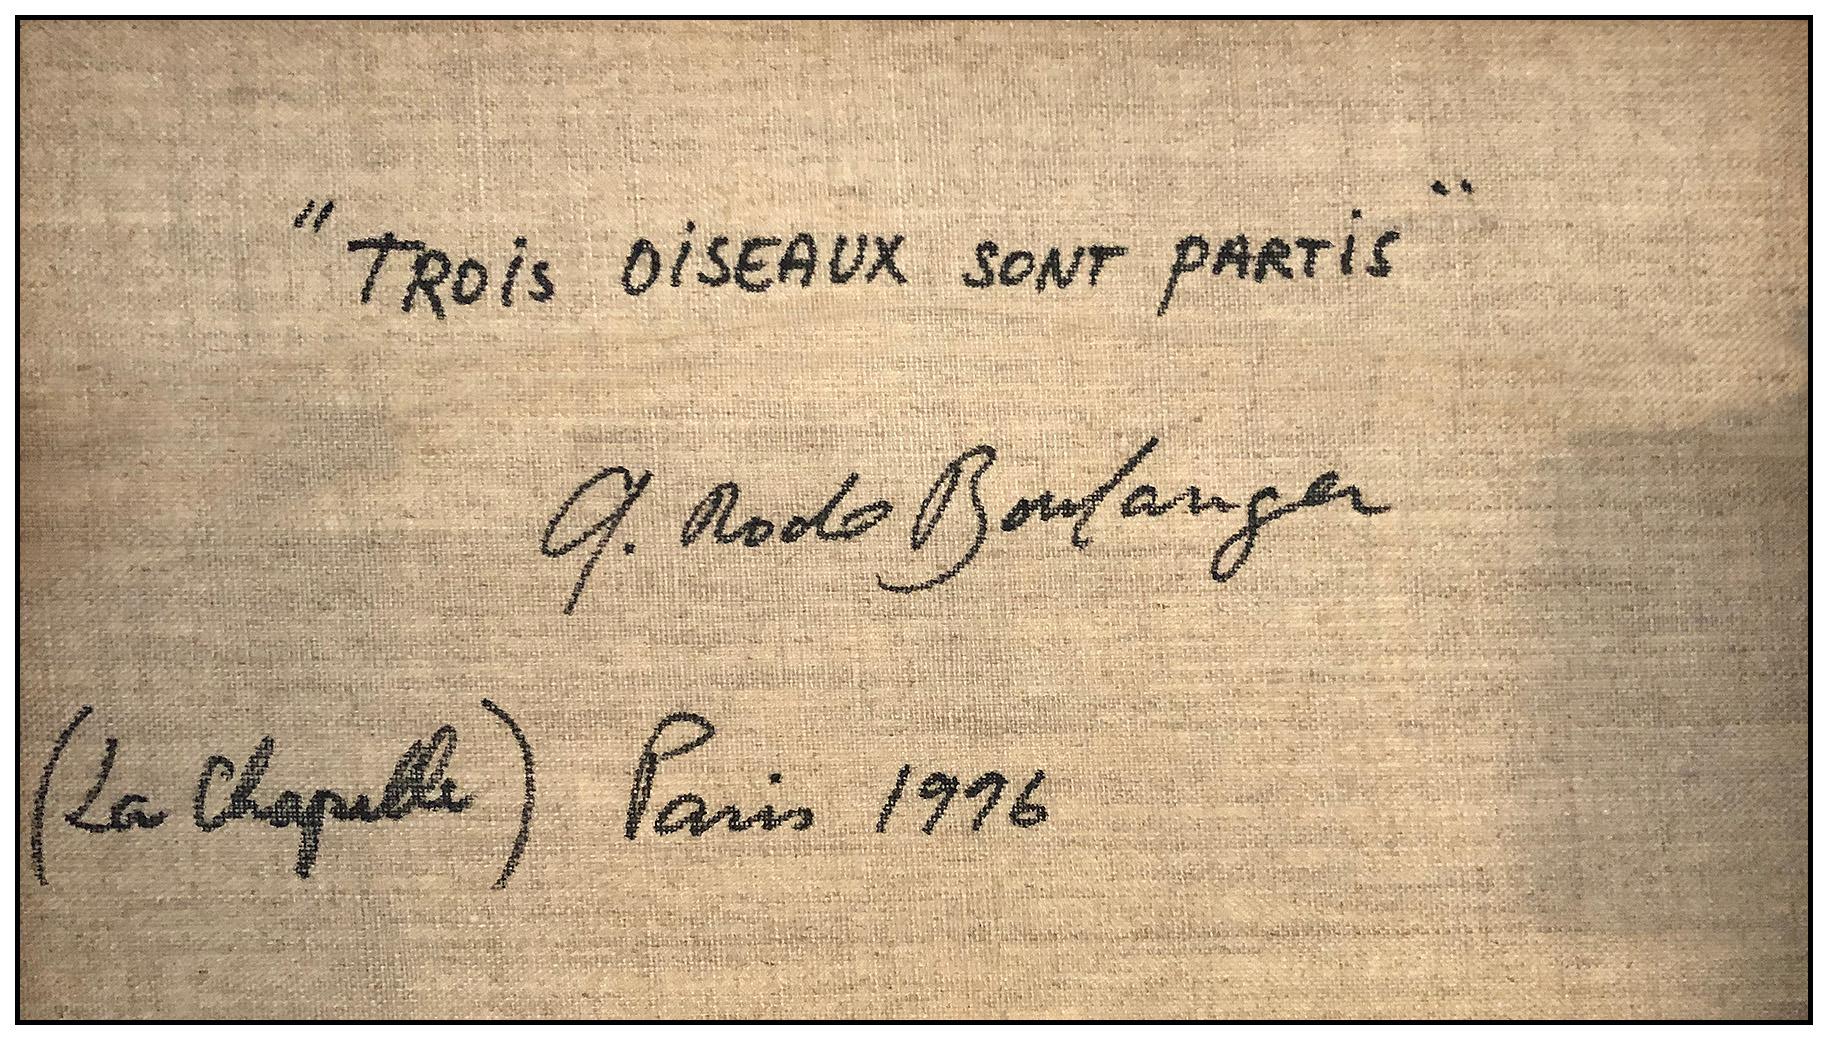 "TROiS OiSEAUX SONT PARTiS"
G. Rodo Boulanger
(La Chapelle) Paris 1996